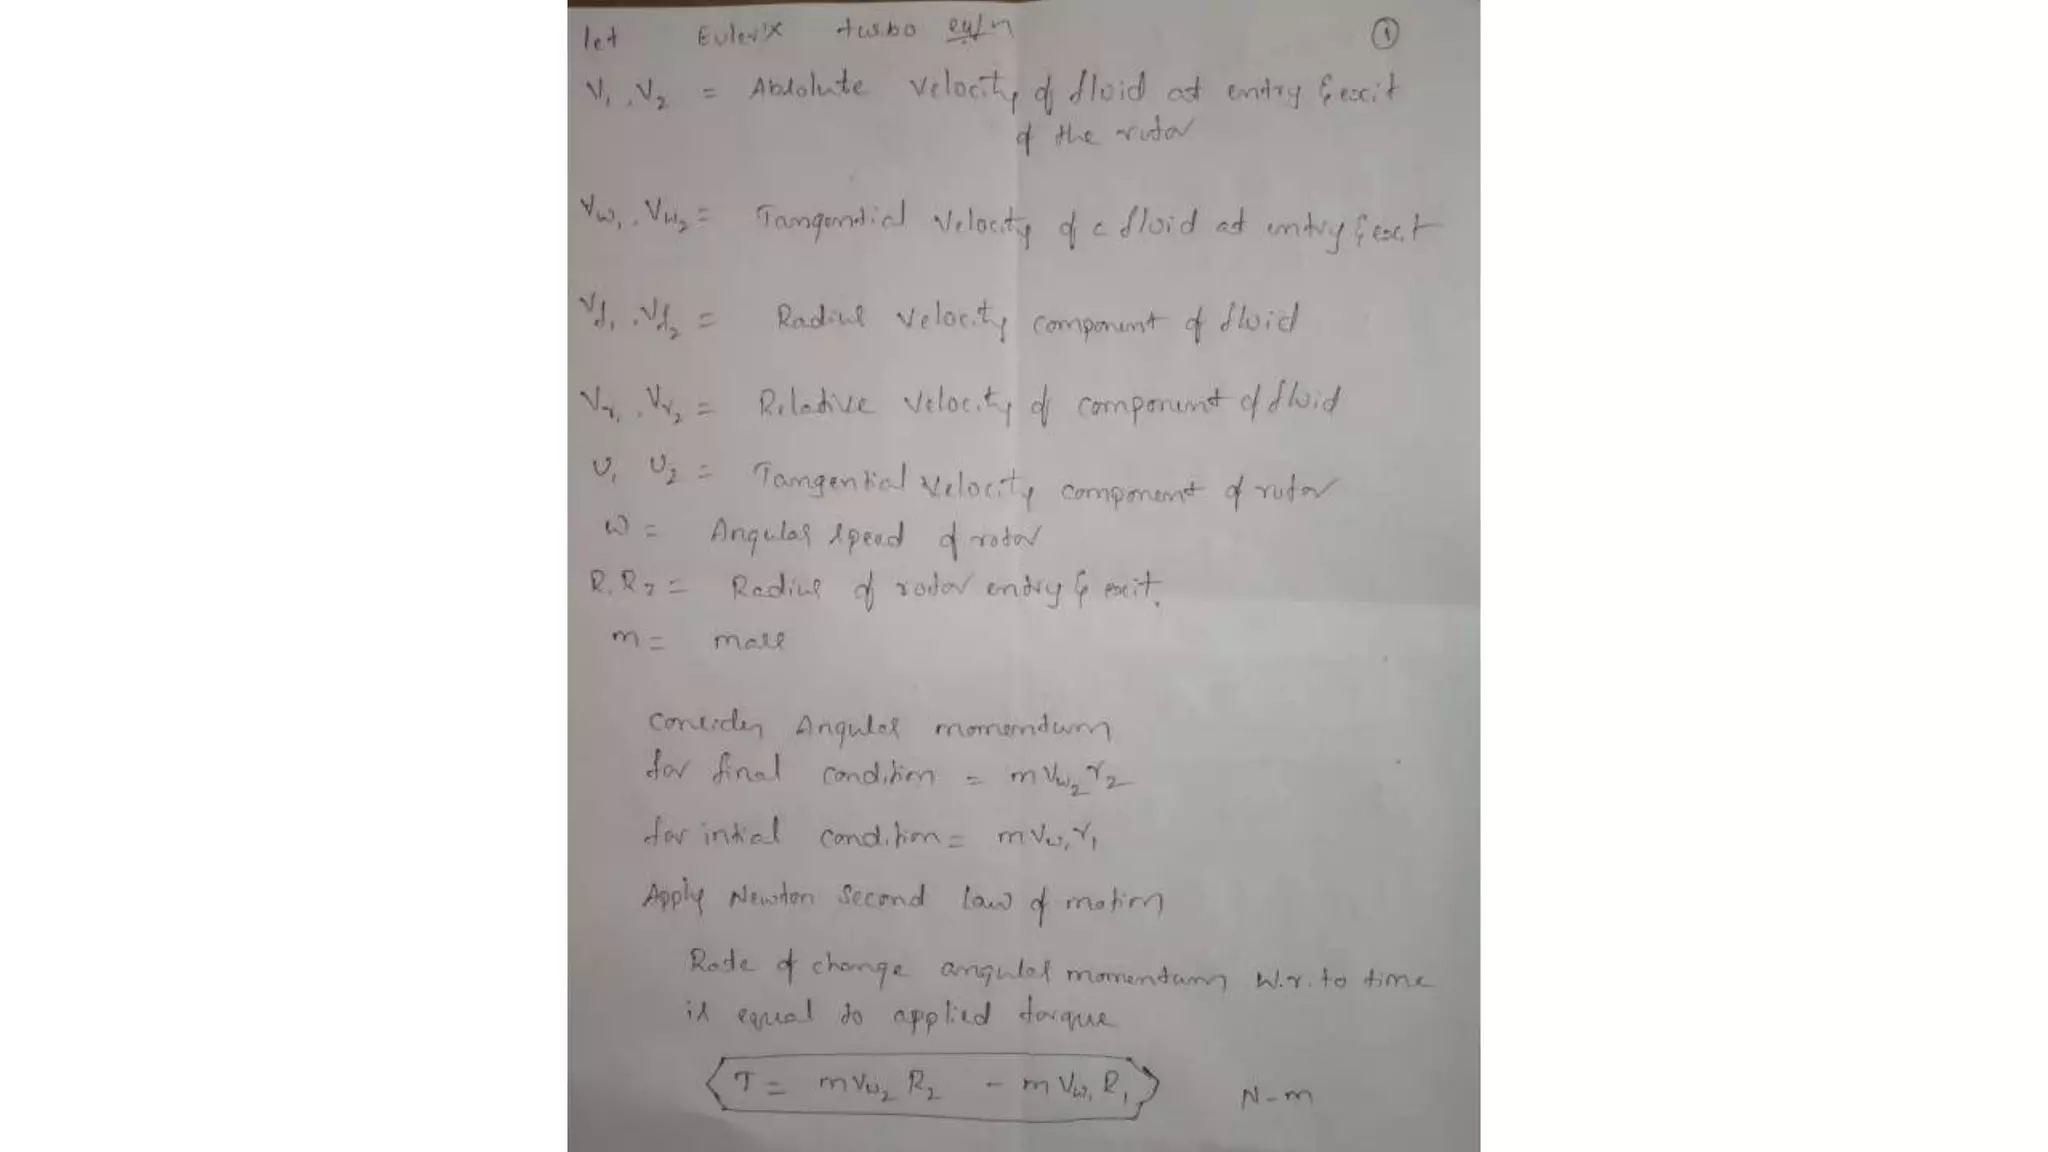 let Euler's turbo eq/n ①
V₁, V₂ = Absolute velocity of fluid at entry & exit
of the rotor
Vw₁, Vw₂ = Tangential velocity of a fluid at entry & exit
Vf₁, Vf₂ = Radius velocity component of fluid
Vr₁, Vr₂ = Relative velocity of component of fluid
U₁ U₂ = Tangential velocity component of rotor
ω = Angular speed of rotor
R₁ R₂ = Radius of rotor entry & exit.
m = mass
Consider Angular momentum
for final condition = m Vw₂ r₂
for intial condition = m Vw₁ r₁
Apply Newton Second law of motion
Rate of change angular momentum w.r. to time
is equal to applied torque
T = m Vw₂ R₂ - m Vw₁ R₁ N-m